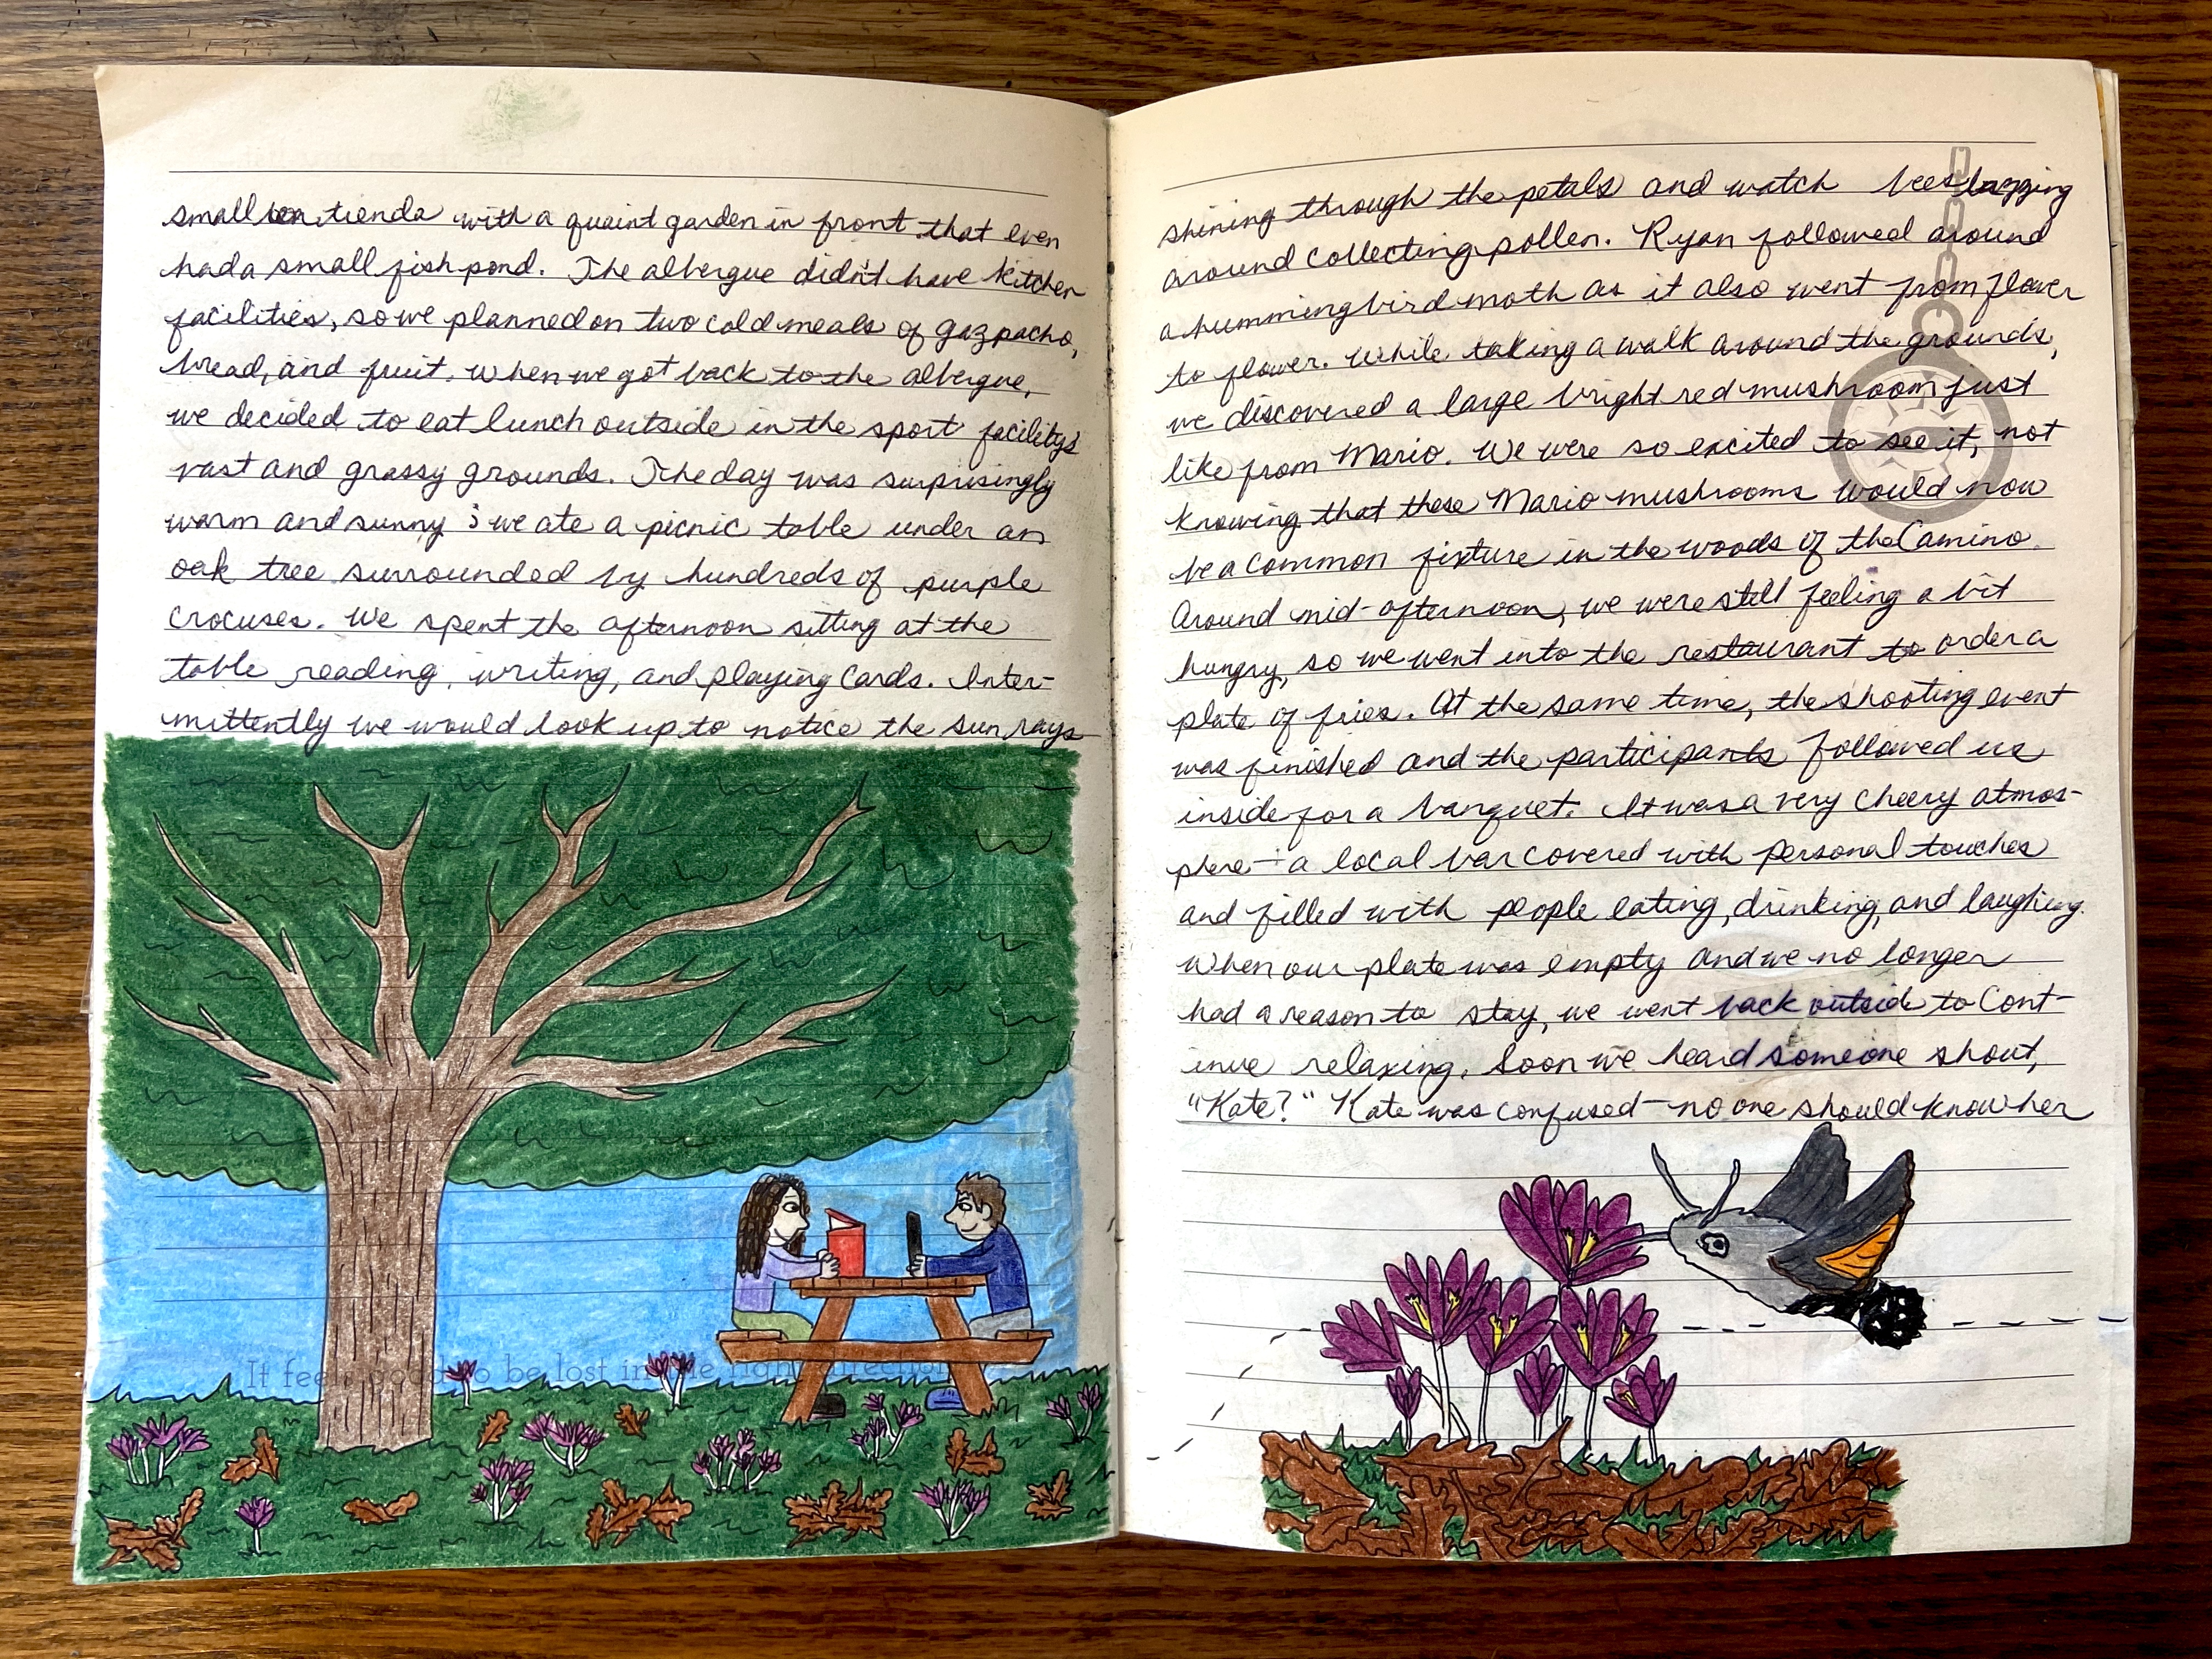 small tienda with a quaint garden in front that even
had a small fish pond. The albergue didn't have kitchen
facilities, so we planned on two cold meals of gazpacho,
bread, and fruit. When we got back to the albergue,
we decided to eat lunch outside in the sport facility's
vast and grassy grounds. The day was surprisingly
warm and sunny; we ate a picnic table under an
oak tree surrounded by hundreds of purple
crocuses. We spent the afternoon sitting at the
table reading, writing, and playing cards. Inter-
mittently we would look up to notice the sun rays
It feels good to be lost in the right direction
shining through the petals and watch bees buzzing
around collecting pollen. Ryan followed around
a hummingbird moth as it also went from flower
to flower. While taking a walk around the grounds,
we discovered a large bright red mushroom just
like from Mario. We were so excited to see it, not
knowing that these Mario mushrooms would now
be a common fixture in the woods of the Camino.
Around mid-afternoon, we were still feeling a bit
hungry, so we went into the restaurant to order a
plate of fries. At the same time, the shooting event
was finished and the participants followed us
inside for a banquet. It was a very cheery atmos-
phere - a local bar covered with personal touches
and filled with people eating, drinking, and laughing.
When our plate was empty and we no longer
had a reason to stay, we went back outside to cont-
inue relaxing. Soon we heard someone shout,
"Kate?" Kate was confused - no one should know her